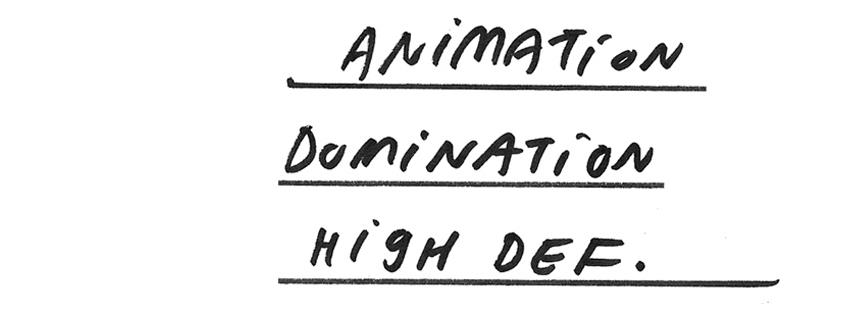 ANiMATiON
DOMiNATiON
HigH DEF.